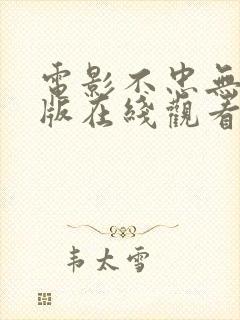 電影不忠無
版在綫觀看
韦太雪